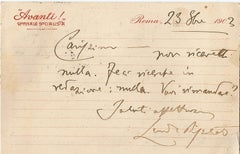 "Avanti!"
GIORNALE SOCIALISTA
Roma, 23 9bre 1903
Carissimo
non ricevetti
nulla. Feci ricerche in
redazione: nulla. Vuoi rimandar?
Saluti affettuosi